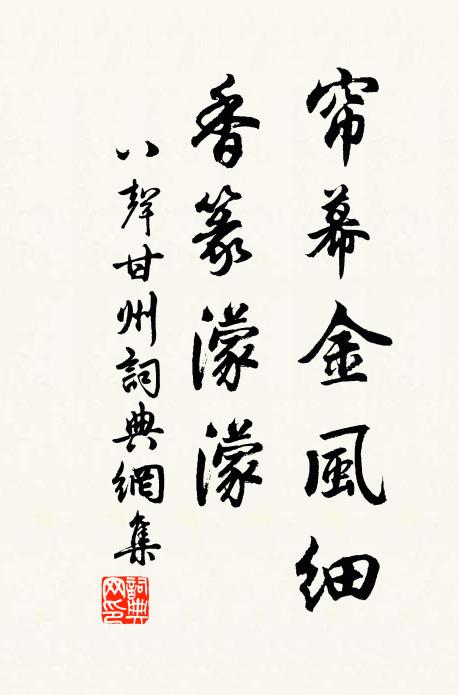 帘幕金風細
香篆濛濛
八聲甘州詞典網集
詞典
网印